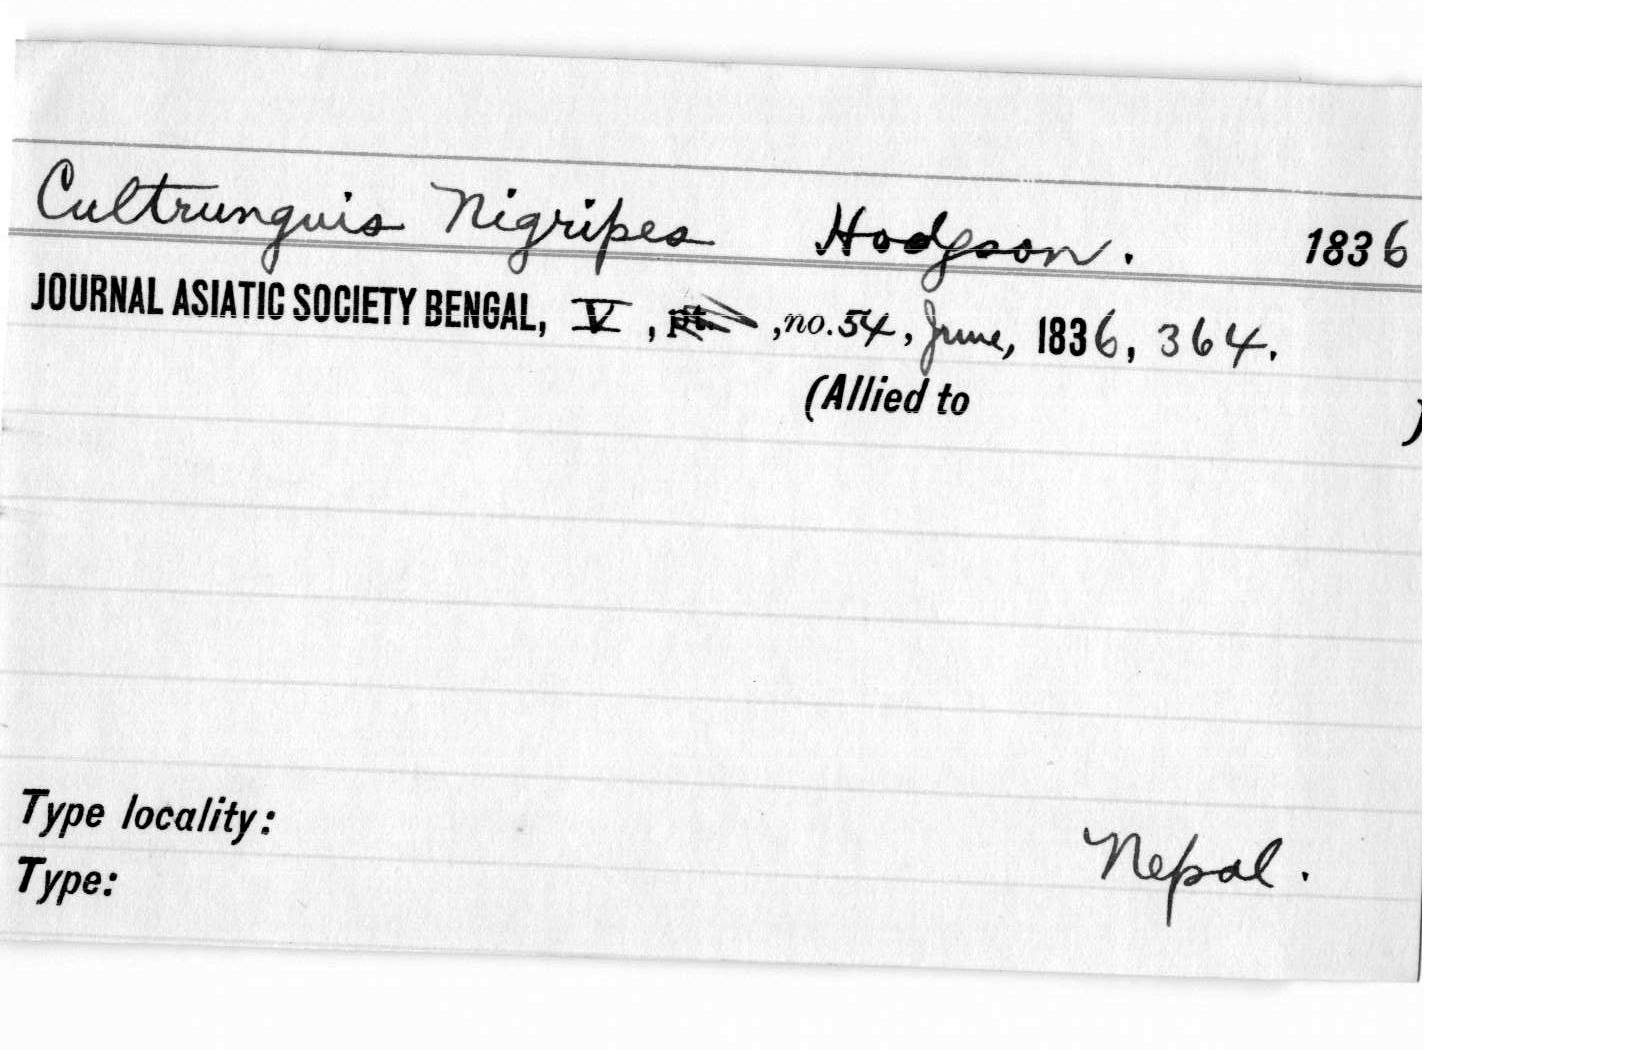 Cultrunguis Nigripes Hodgson. 1836
JOURNAL ASIATIC SOCIETY BENGAL, V, pt. , no. 54, June, 1836, 364.
(Allied to )
Type locality: Nepal.
Type: